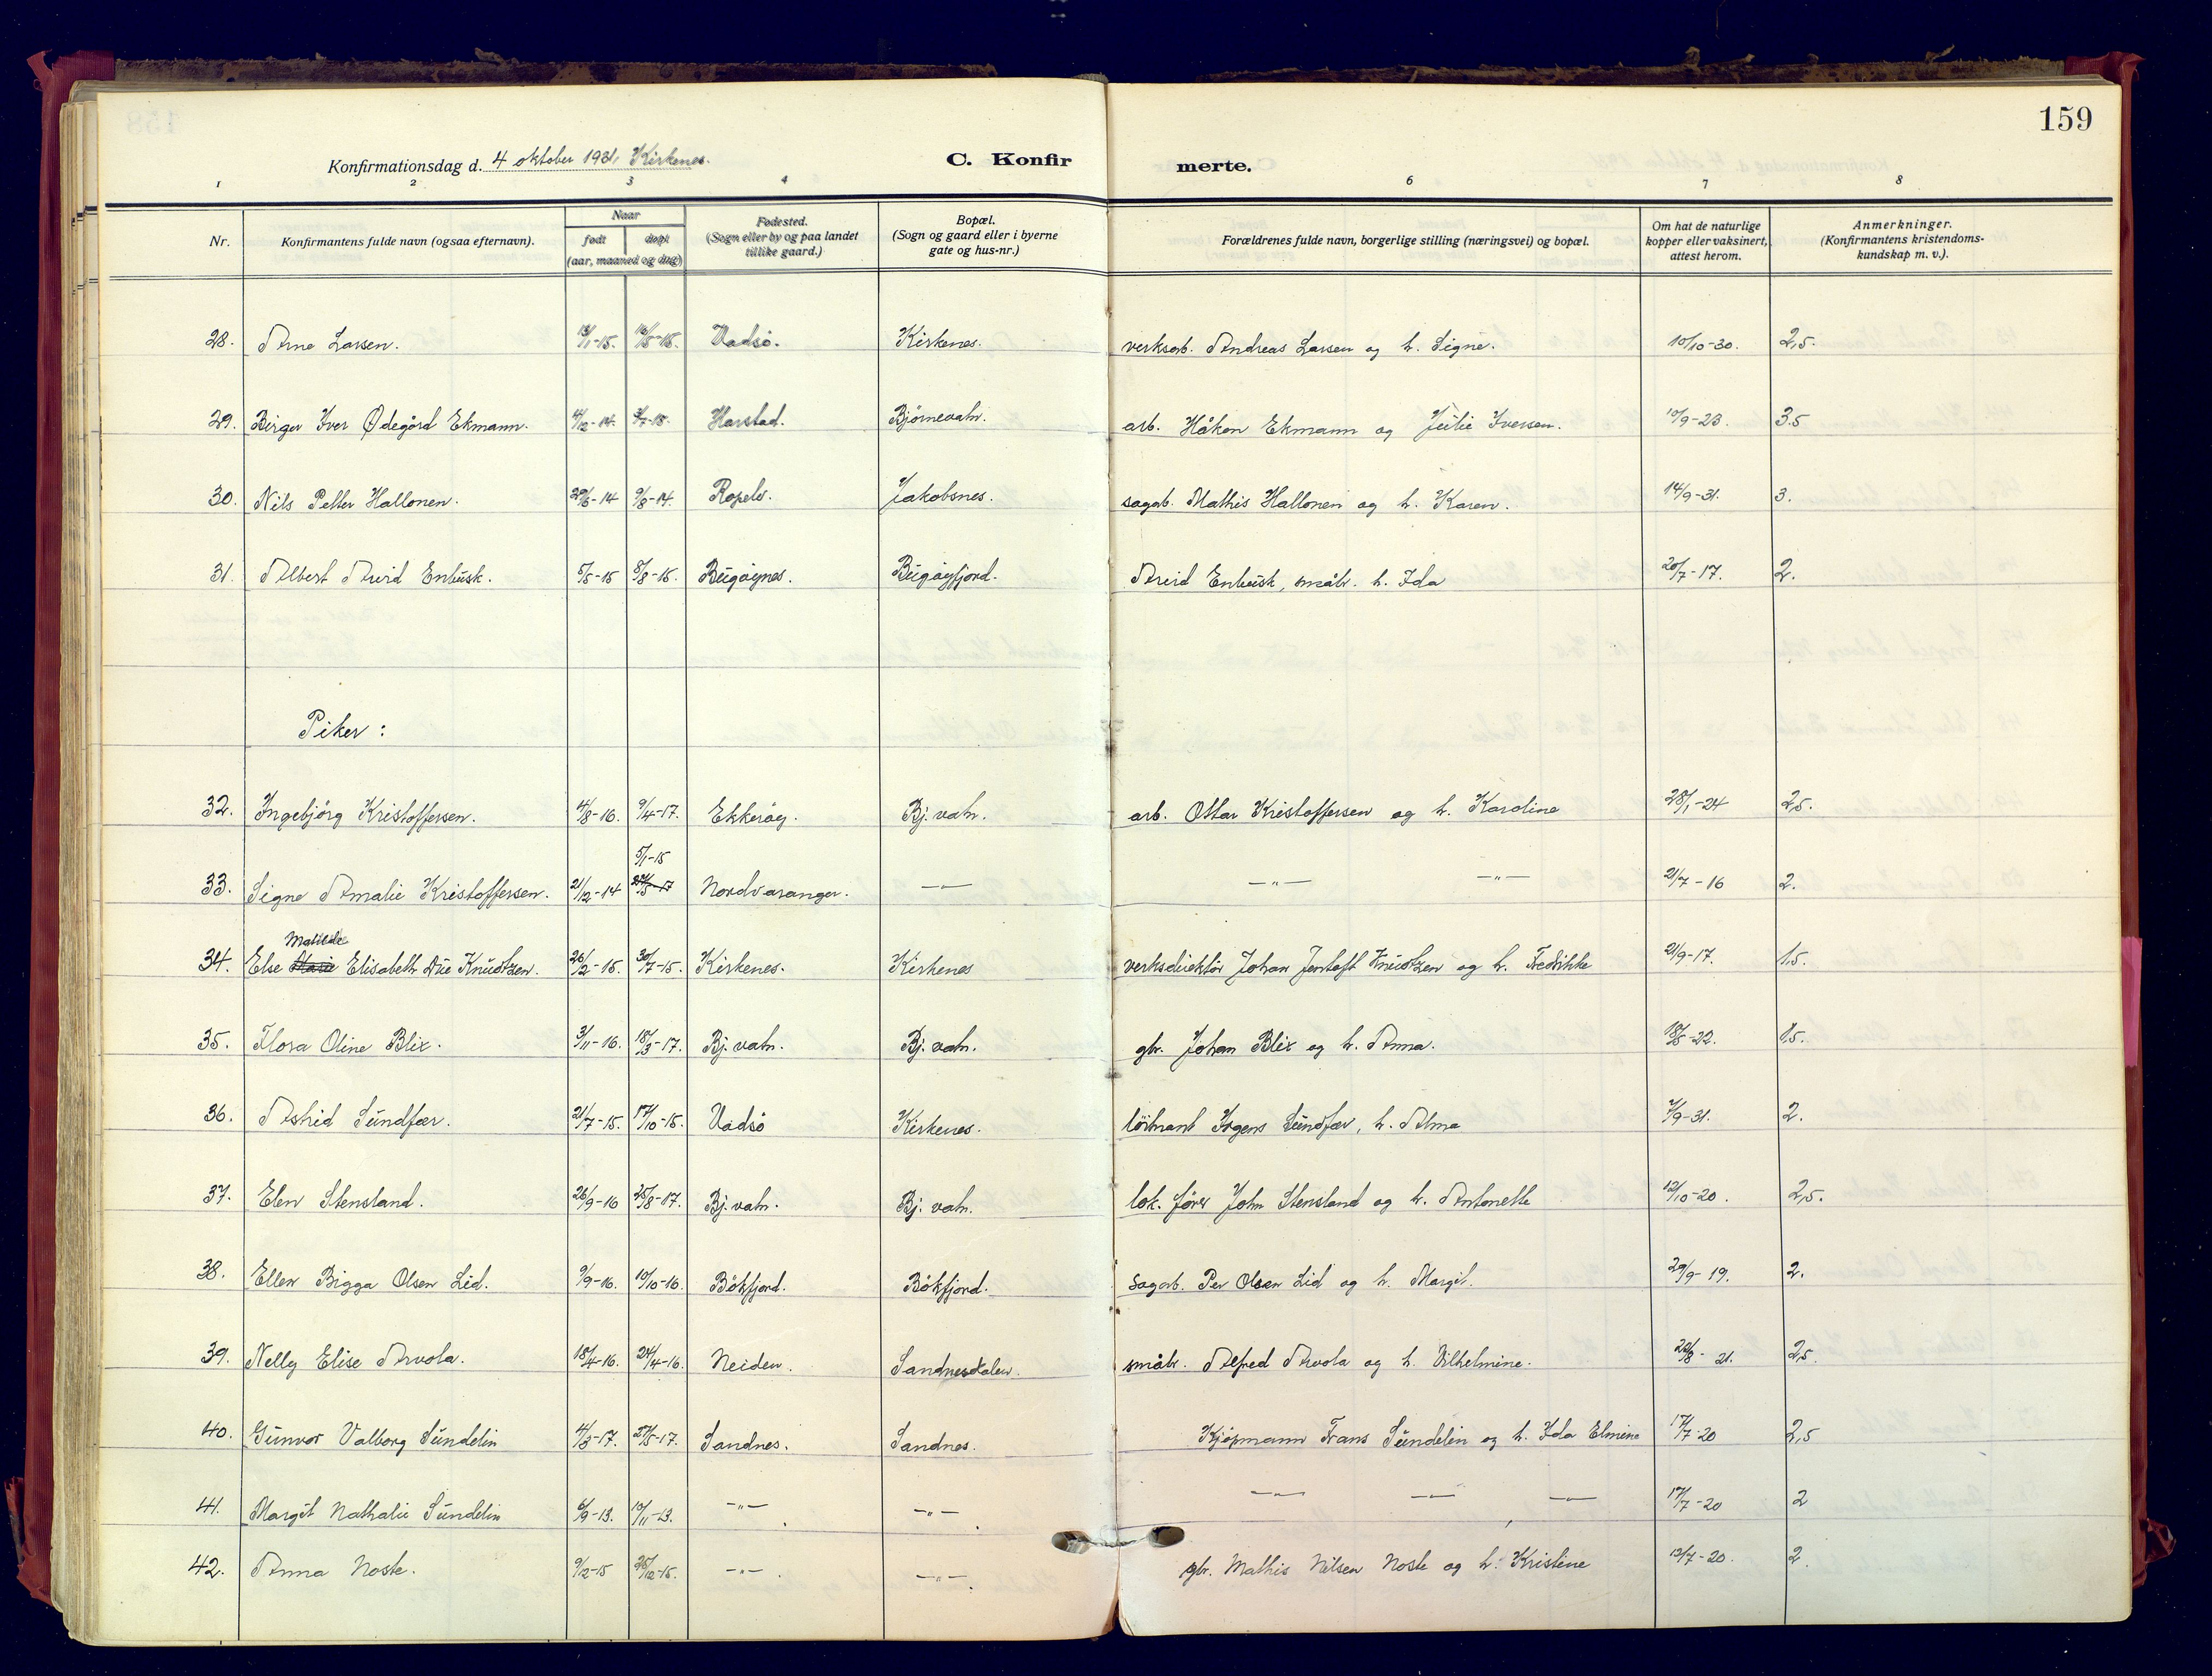 159
Konfirmationsdag d. 4 oktober 1931, Kirkenes.
C. Konfirmerte.
1 2 3 4 6 7 8
Nr. Konfirmantens fulde navn (ogsaa efternavn). Naar født døpt (aar, maaned og dag) Fødested. (Sogn eller by og paa landet tillike gaard.) Bopæl. (Sogn og gaard eller i byerne gate og hus-nr.) Forældrenes fulde navn, borgerlige stilling (næringsvei) og bopæl. Om hat de naturlige kopper eller vaksinert, attest herom. Anmerkninger. (Konfirmantens kristendomskundskap m. v.).
28. Arne Larsen. 13/1-15. 16/5-15. Vadsö. Kirkenes. verksarb. Andreas Larsen og h. Signe. 10/10-30. 2,5.
29. Birger Iver Ødegård Ekmann. 4/12-14. 4/7-15. Harstad. Bjørnevatn. arb. Håkon Ekmann og Julie Iversen. 10/9-23. 3.5
30. Nils Petter Hallonen. 29/6-14 9/8-14. Ropelv. Jakobsnes. sagarb. Mathis Hallonen og h. Karen. 14/9-31. 3.
31. Albert Arvid Enbusk. 5/5-15 8/8-15. Bugöynes. Bugöyfjord. Arvid Enbusk, småbr. h. Ida 20/7-17. 2.
Piker:
32. Ingebjörg Kristoffersen. 4/8-16. 9/4-17. Ekkeröy. Bj.vatn. arb. Ottar Kristoffersen og h. Karoline 28/1-24 2,5.
5/1-15
33. Signe Amalie Kristoffersen. 21/12-14 Nordvaranger. —"— —"— —"— 21/7-16 2.
Matilde
34. Else Marie Elisabeth Due Knudtzen. 26/2-15. 30/7-15. Kirkenes. Kirkenes verksdirektör Johan Jentoft Knudtzen og h. Fredrikke 21/9-17. 1,5.
35. Flora Oline Blix. 3/11-16. 18/3-17. Bj.vatn. Bj.vatn. gbr. Johan Blix og h. Anna. 18/5-22. 1,5.
36. Astrid Sundfær. 21/7-15. 17/10-15. Vadsö Kirkenes. löitnant Jörgens Sundfær, h. Alma 7/9-31. 2.
37. Elen Stensland. 26/9-16 25/8-17. Bj.vatn. Bj. vatn. lok. förer John Stensland og h. Antonette 12/10-20. 2,5.
38. Ellen Bigga Olsen Lid. 9/9-16. 10/10-16. Bökfjord. Bökfjord. sagarb. Per Olsen Lid og h. Margit. 29/9-19. 2.
39. Nelly Elise Arvola. 18/4-16. 24/4-16. Neiden. Sandnesdalen. småbr. Alfred Arvola og h. Vilhelmine. 26/8-21. 2,5.
40. Gunvor Valborg Sundelin 4/3-17. 27/5-17. Sandnes. Sandnes. Kjøpmann Frans Sundelin og h. Ida Elmine 17/7-20 2,5
41. Margit Nathalie Sundelin 6/9-13. 10/11-13. —"— —"— —"— —"— —"— 17/7-20 2
42. Anna Noste. 9/12-15 26/12-15. —"— —"— gbr. Mathis Nilsen Noste og h. Kristine 13/7-20. 2.